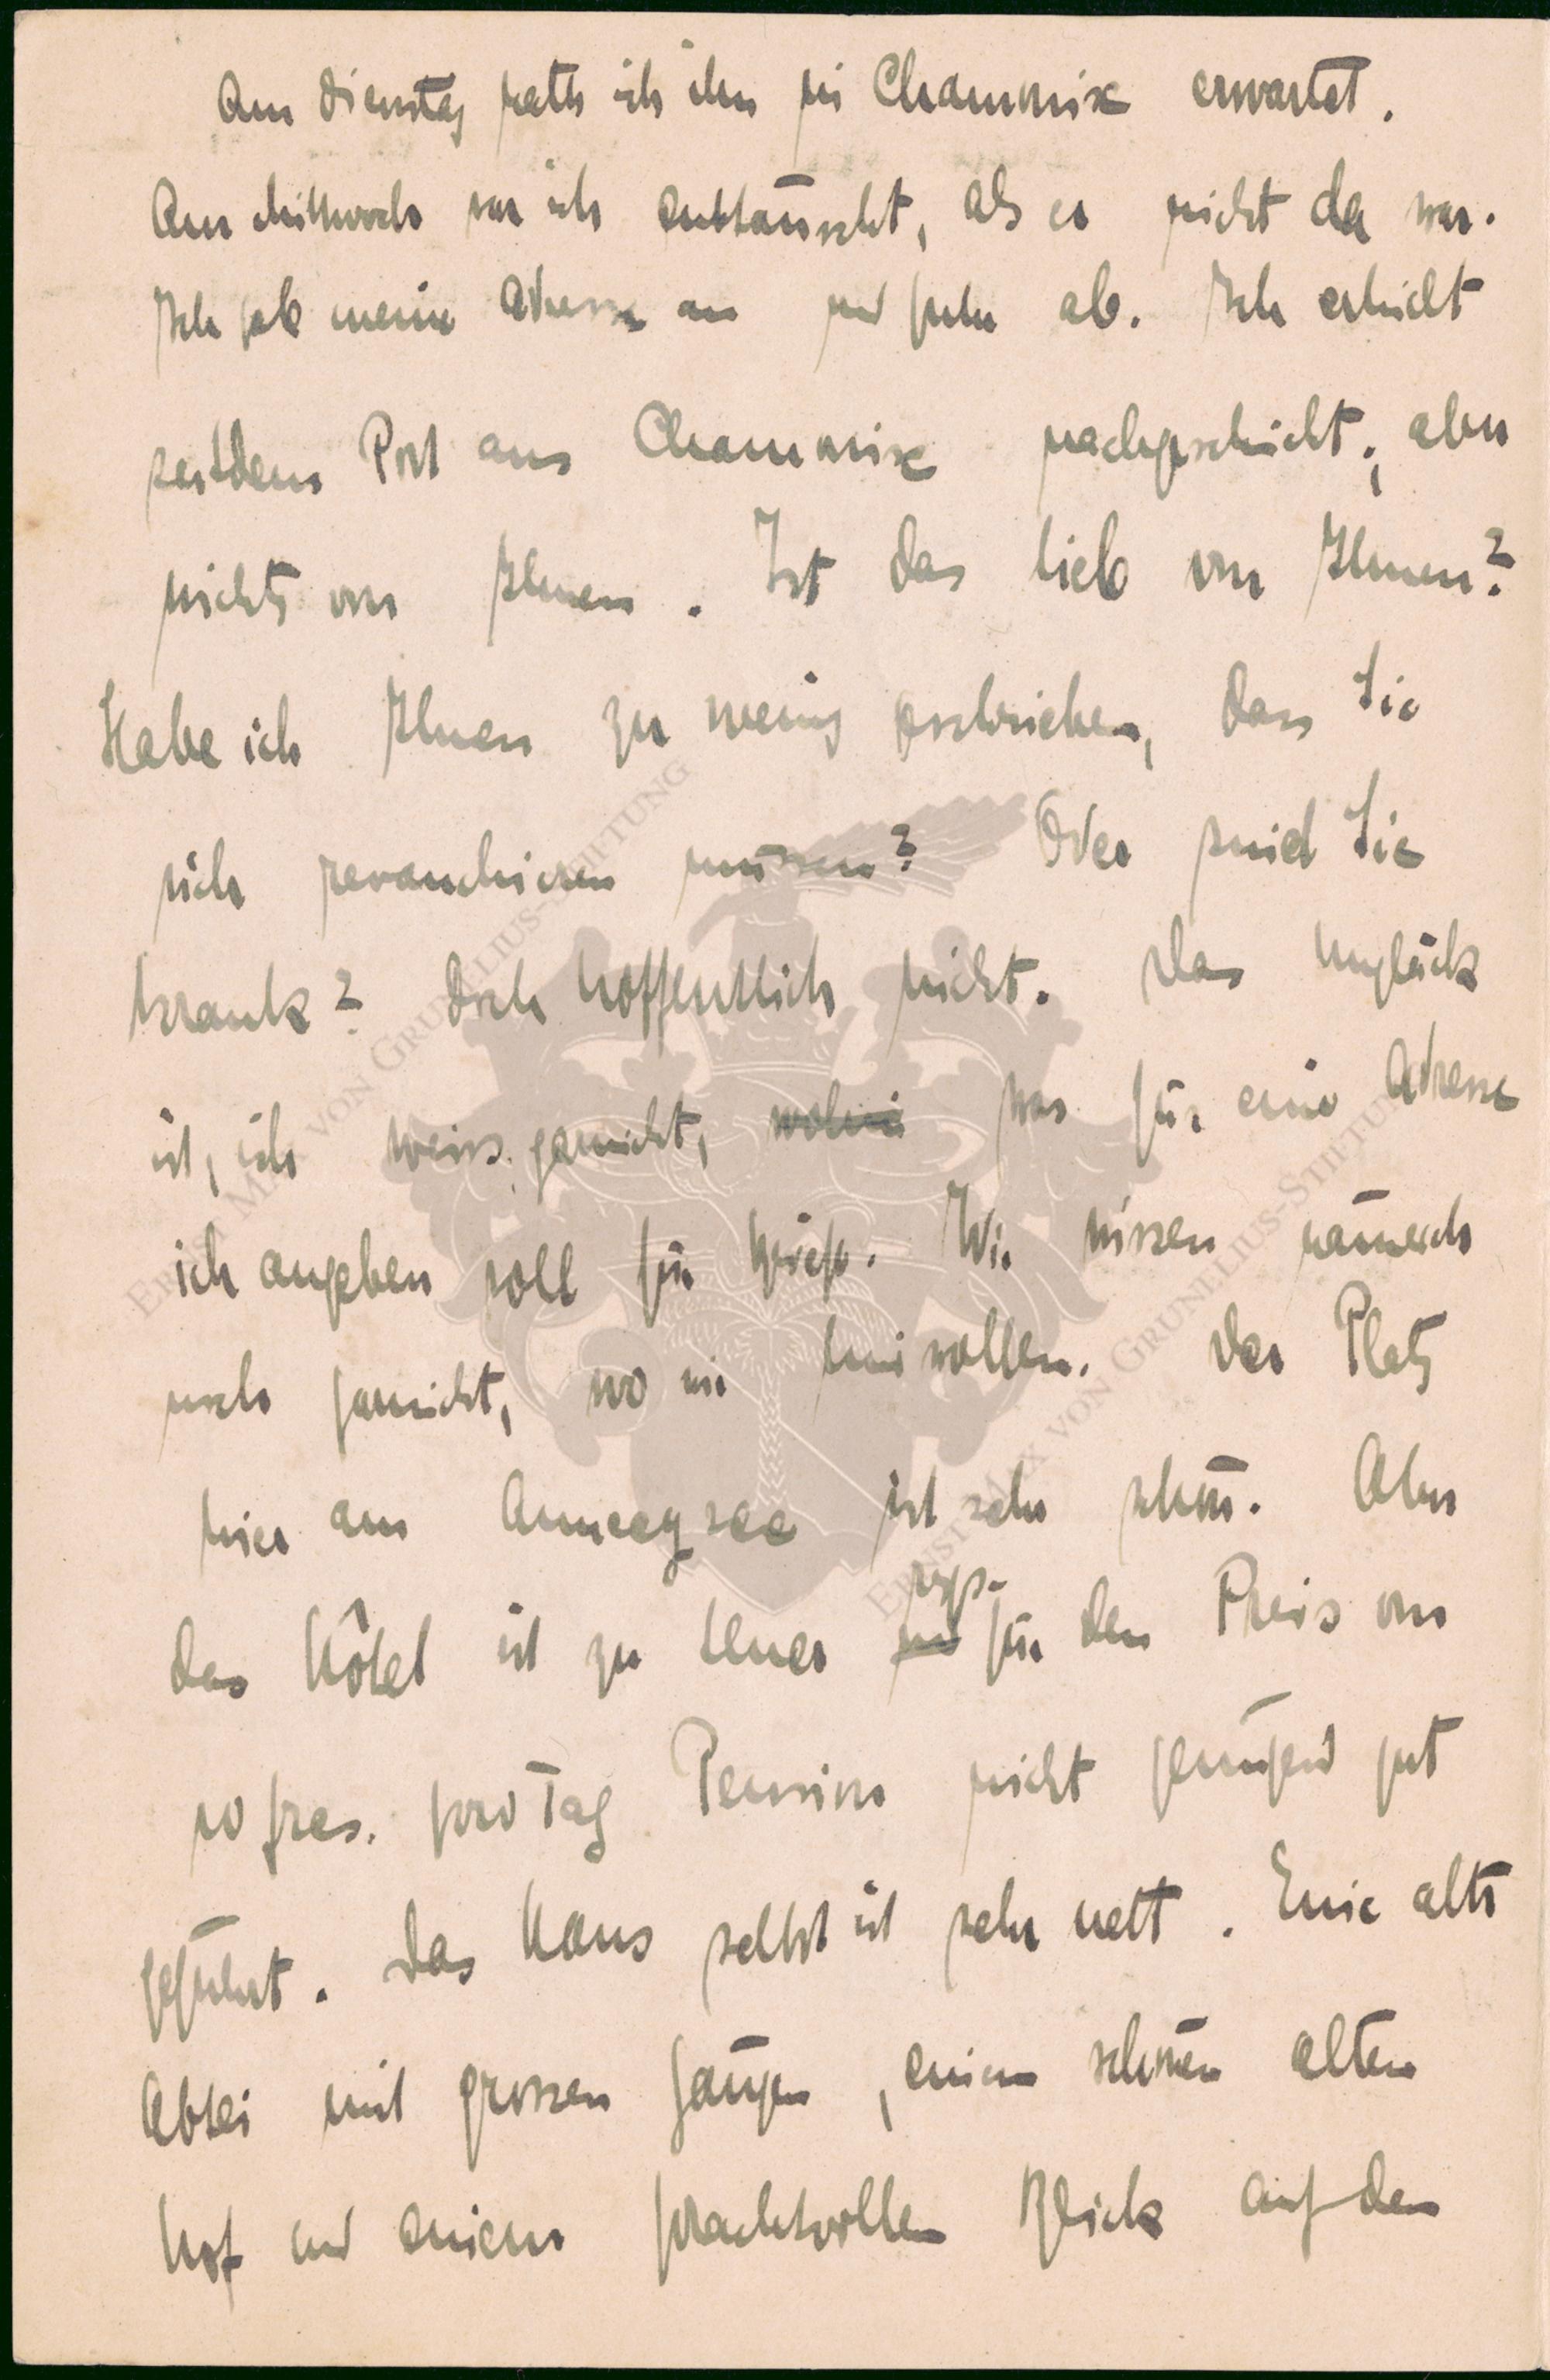 Am Dienstag hatte ich ihn in Chammnix erwartet.
Am Mittwoch war ich enttäuscht, als er nicht da war.
Ich gab meine Adresse an und fuhr ab. Ich erhielt
seitdem Post aus Chammnix nachgeschickt, aber
nichts von Ihnen. Ist das lieb von Ihnen?
Habe ich Ihnen zu wenig geschrieben, dass Sie
sich revanchieren müssen? Oder sind Sie
krank? Doch hoffentlich nicht. Das Unglück
ist, ich weiss garnicht, was für eine Adresse
ich angeben soll für Briefe. Wir wissen nämlich
noch garnicht, wo wir hin wollen. Der Platz
hier am Annecysee ist sehr schön. Aber
das Hôtel ist zu teuer resp. für den Preis von
10 frcs. pro Tag Pension nicht genügend gut
geführt. Das Haus selbst ist sehr nett. Eine alte
Abtei mit grossen Gängen, einem schönen alten
Hof und einem prachtvollen Blick auf den
ERNST MAX VON GRUNELIUS-STIFTUNG
ERNST MAX VON GRUNELIUS-STIFTUNG